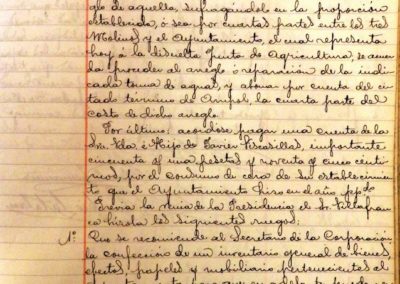 glo de aquella, sufragándolo en la proporción
establecida, ó sea por cuartas partes entre los tres
Molinos y el Ayuntamiento, el cual representa
hoy á la disuelta Junta de Agricultura, se acuer
da proceder al arreglo ó reparación de la indi
cada toma de aguas, y abonar por cuenta del ci
tado término de la cuarta parte del
costo de dicho arreglo.
Por último: acordóse pagar una cuenta de la
Sra. Vda. é Hijo de Javier Viscasillas, importante
cincuenta y una pesetas y noventa y cinco cénti
mos, por el consumo de cera de su establecimien
to que el Ayuntamiento hizo en el año ppdo.
Previa la venia de la Presidencia el Sr. Villafran
ca hízola los siguientes ruegos:
Nº Que se recomiende al Secretario de la Corporación
la confección de un inventario general de bienes,
efectos, papeles y mobiliario pertenecientes al